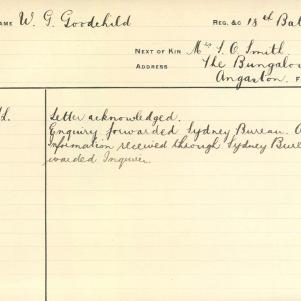 NAME W. G. Goodchild REG. &C 18th Bat
NEXT OF KIN Mrs S. C. Smith.
ADDRESS The Bungalow
Angaston. F
Letter acknowledged.
Enquiry forwarded Sydney Bureau. A
Information received through Sydney Bure
warded Inquirer.